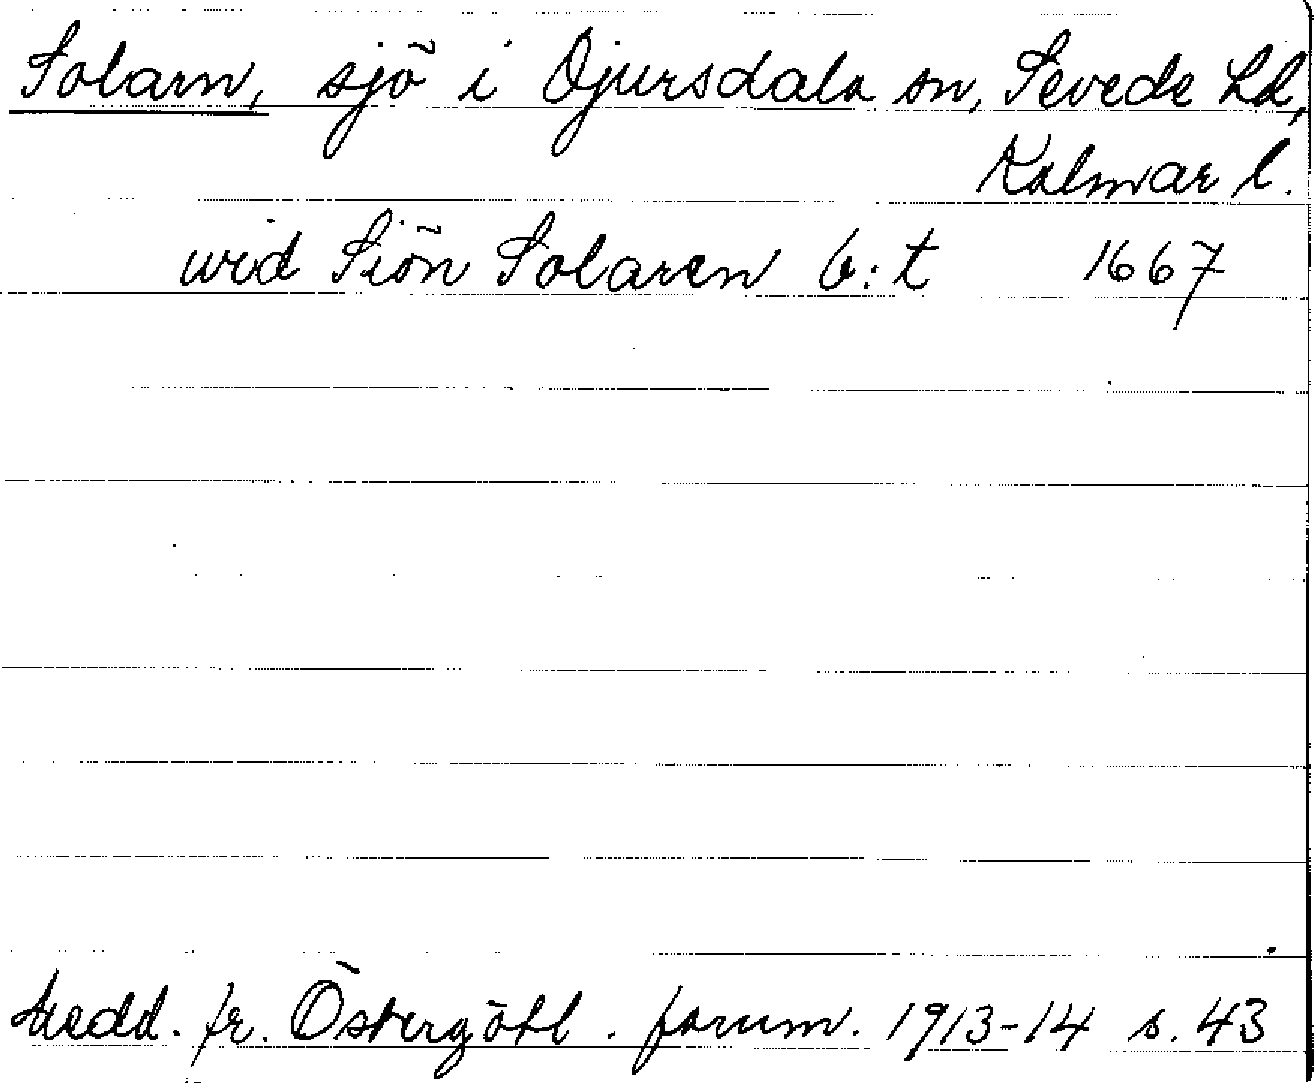 Solarn, sjö i Djursdala sn, Sevede hd,
Kalmar l.
wid Siön Solaren b:t 1667
Medd. fr. Östergötl. fornm. 1913-14 s. 43